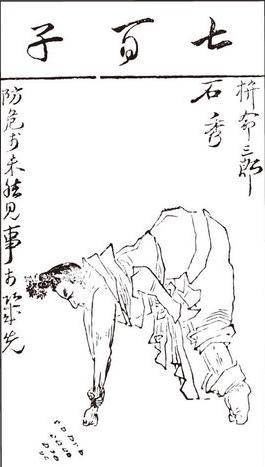 七百子
拚命三郎
石秀
防危於未然見事於幾先